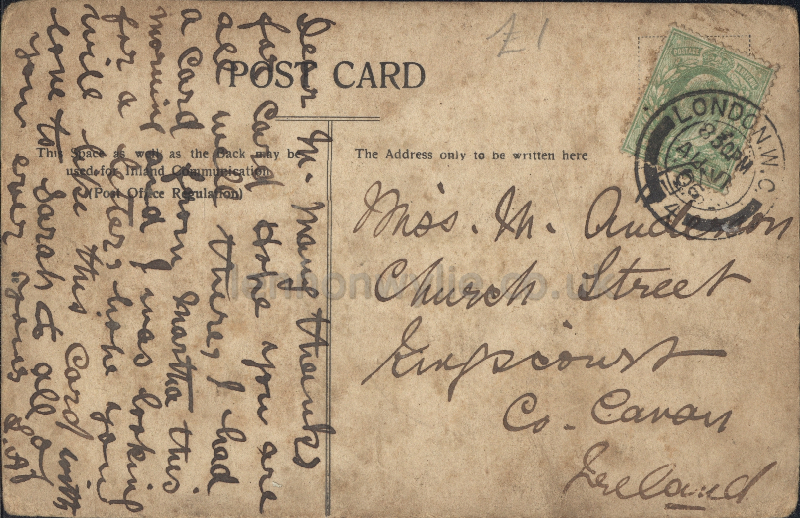 £1
POST CARD
This Space as well as the Back may be
used for Inland Communication
(Post Office Regulation)
The Address only to be written here
LONDON. W.C.
8.30 PM
Miss. M. Anderson
Church Street
Kingscourt
Co. Cavan
Ireland
Dear M. Many thanks
for Card Hope you are
all well there, I had
a Card from Martha this
morning and I was looking
for a letter, hope you
will like this Card with
love to Sarah & all
you ever yours
lennonwylie.co.uk